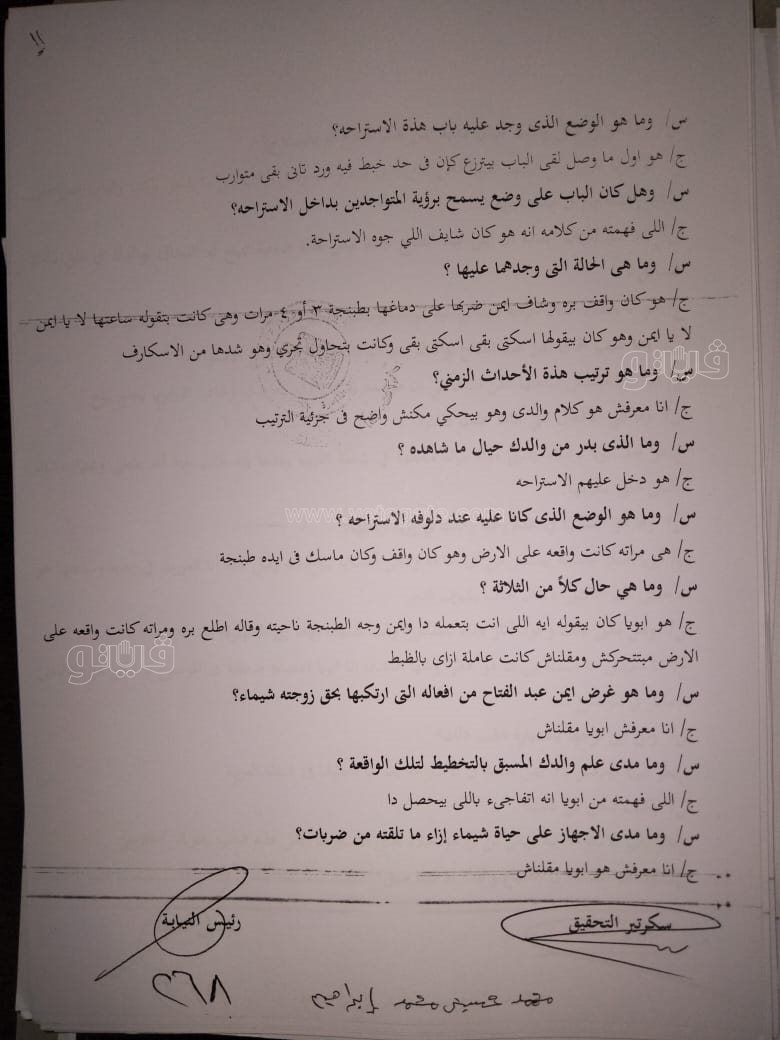 ١١
س/ وما هو الوضع الذى وجد عليه باب هذة الاستراحه؟
ج/ هو اول ما وصل لقى الباب بيترزع كإن فى حد خبط فيه ورد تانى بقى متوارب
س/ وهل كان الباب على وضع يسمح برؤية المتواجدين بداخل الاستراحه؟
ج/ اللى فهمته من كلامه انه هو كان شايف اللي جوه الاستراحة.
س/ وما هى الحالة التى وجدهما عليها ؟
ج/ هو كان واقف بره وشاف ايمن ضربها على دماغها بطبنجة ٣ أو ٤ مرات وهى كانت بتقوله ساعتها لا يا ايمن
لا يا ايمن وهو كان بيقولها اسكتى بقى اسكتى بقى وكانت بتحاول تجري وهو شدها من الاسكارف
س/ وما هو ترتيب هذة الأحداث الزمني؟
ج/ انا معرفش هو كلام والدى وهو بيحكي مكنش واضح فى جزئية الترتيب
س/ وما الذى بدر من والدك حيال ما شاهده ؟
ج/ هو دخل عليهم الاستراحه
س/ وما هو الوضع الذى كانا عليه عند دلوفه الاستراحه ؟
ج/ هى مراته كانت واقعه على الارض وهو كان واقف وكان ماسك فى ايده طبنجة
س/ وما هي حال كلاً من الثلاثة ؟
ج/ هو ابويا كان بيقوله ايه اللى انت بتعمله دا وايمن وجه الطبنجة ناحيته وقاله اطلع بره ومراته كانت واقعه على
الارض مبتتحركش ومقلناش كانت عاملة ازاى بالظبط
س/ وما هو غرض ايمن عبد الفتاح من افعاله التى ارتكبها بحق زوجته شيماء؟
ج/ انا معرفش ابويا مقلناش
س/ وما مدى علم والدك المسبق بالتخطيط لتلك الواقعة ؟
ج/ اللى فهمته من ابويا انه اتفاجىء باللى بيحصل دا
س/ وما مدى الاجهاز على حياة شيماء إزاء ما تلقته من ضربات؟
ج/ انا معرفش هو ابويا مقلناش
سكرتير التحقيق
رئيس النيابة
محمد حسين محمد إبراهيم
ڤيتو
ڤيتو